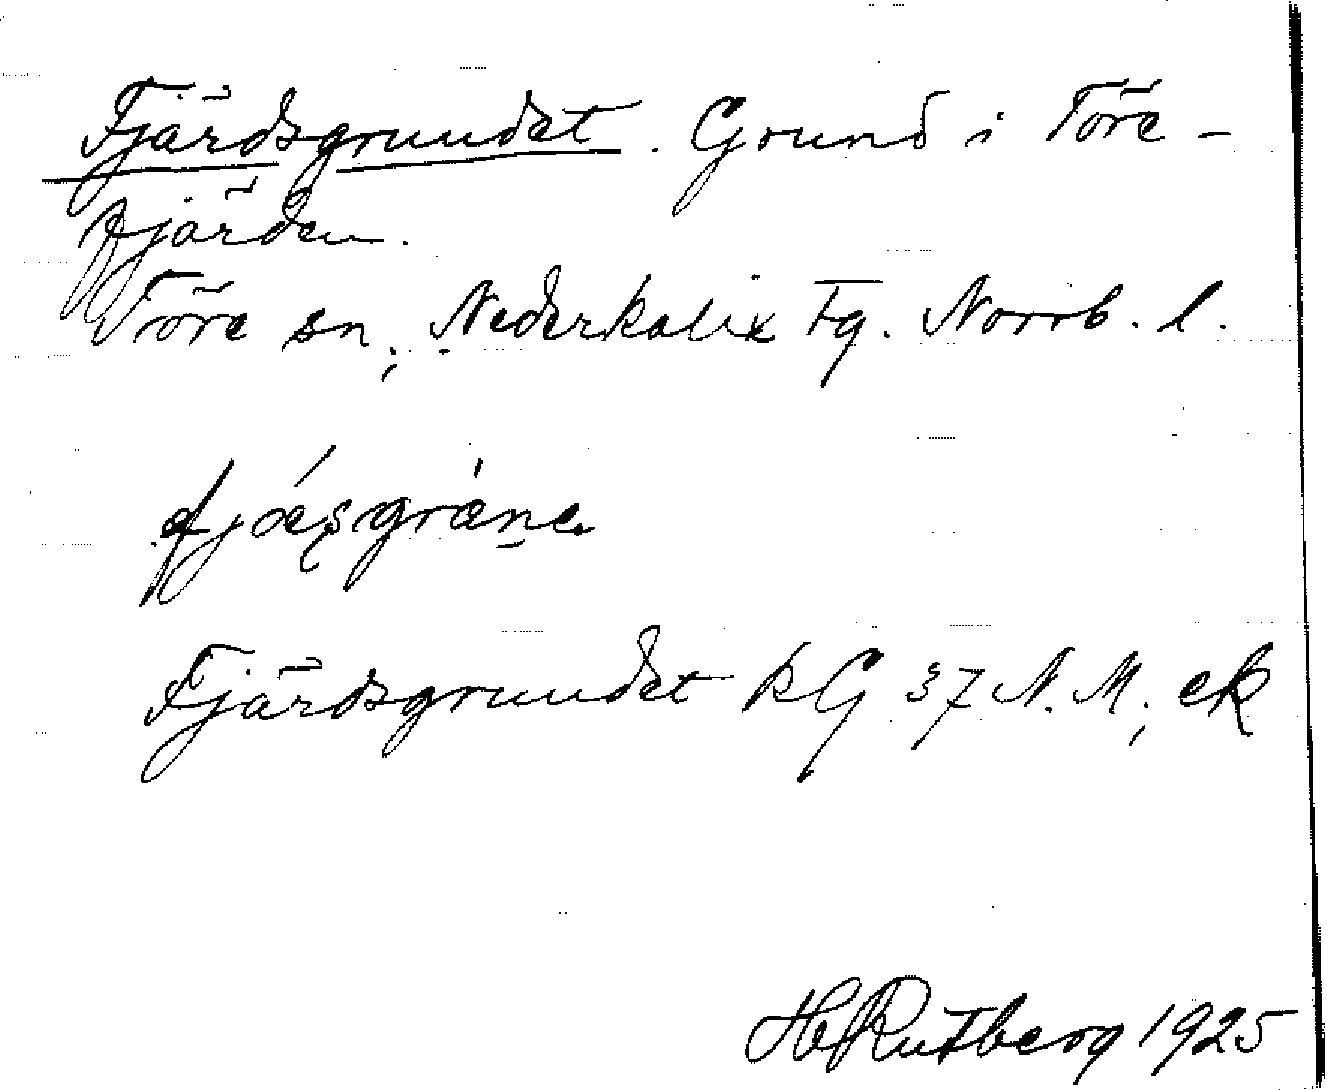 Fjärdsgrundet. Grund i Töre-
fjärden.
Töre sn, Nederkalix tg. Norrb. l.
Fjärdsgrundet kG 37 N.M; ek
H Rutberg 1925